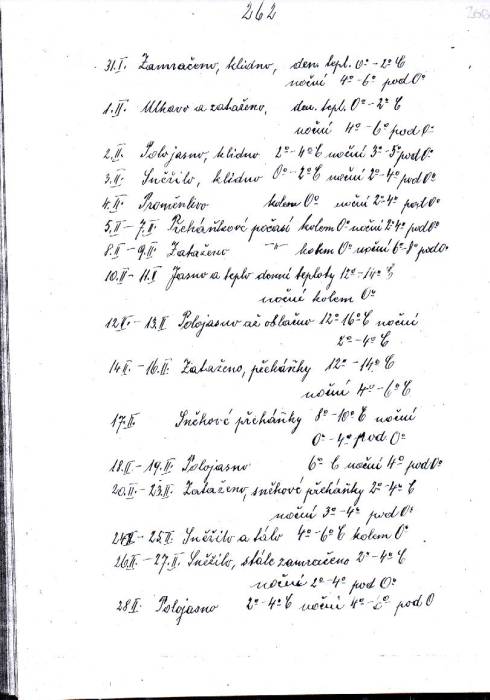 262
31.I. Zamračeno, klidno, den. tepl. 0°-2°C
noční 4°-6° pod 0°
1.II. Mlhavo a zataženo, den. tepl. 0°-2°C
noční 4°-6° pod 0°
2.II. Polojasno, klidno 2°-4°C noční 3°-5° pod 0°
3.II. Sněžilo, klidno 0°-2°C noční 2°-4° pod 0°
4.II. Proměnlivo kolem 0° noční 2°-4° pod 0°
5.II - 7.II. Přeháňkové počasí kolem 0° noční 2°-4° pod 0°
8.II - 9.II. Zataženo -"- kolem 0° noční 6°-8° pod 0°
10.II - 11.II Jasno a teplo denní teploty 12°-14°C
noční kolem 0°
12.II. - 13.II Polojasno až oblačno 12°-16°C noční
2°-4°C
14.II. - 16.II. Zataženo, přeháňky 12°-14°C
noční 4°-6°C
17.II. Sněhové přeháňky 8°-10°C noční
0°-4° pod 0°
18.II - 19.II. Polojasno 6°C noční 4° pod 0°
20.II. - 23.II. Zataženo, sněhové přeháňky 2°-4°C
noční 3°-4° pod 0°
24.II - 25.II Sněžilo a tálo 4°-6°C kolem 0°
26.II. - 27.II. Sněžilo, stále zamračeno 2°-4°C
noční 2°-4° pod 0°
28.II. Polojasno 2°-4°C noční 4°-6° pod 0